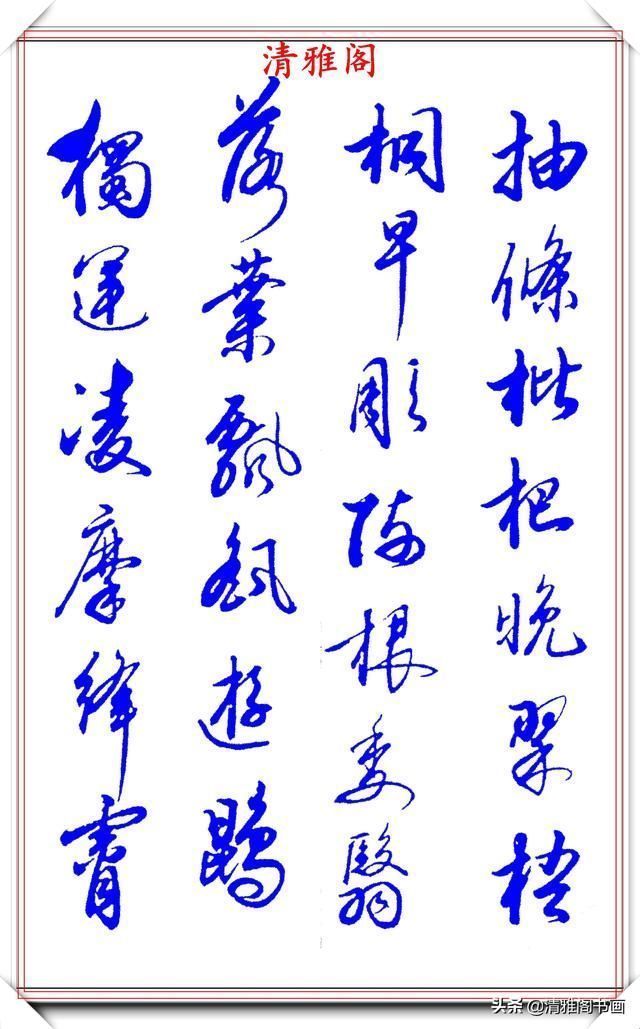 清雅阁
抽條枇杷晚翠梧
桐早彫陳根委翳
落葉飄颻遊鵾
獨運凌摩絳霄
头条 @清雅阁书画